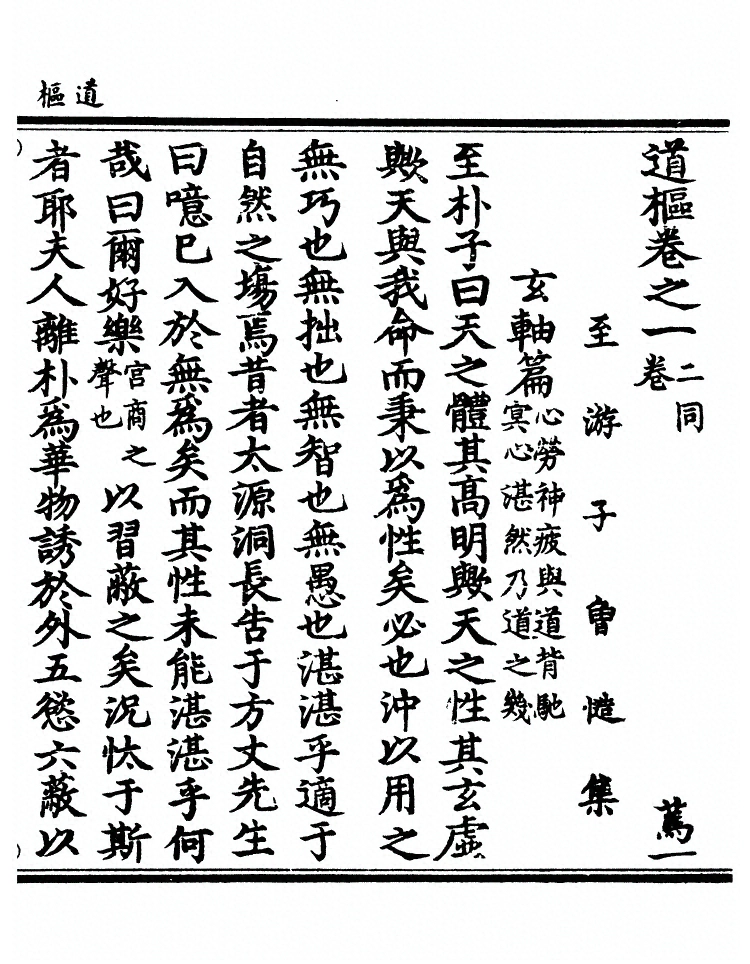 道樞
道樞卷之一二同卷 篤一
至游子曾慥集
玄軸篇心勞神疲與道背馳冥心湛然乃道之幾
至朴子曰天之體其高明歟天之性其玄虛
歟天與我命而秉以爲性矣必也沖以用之
無巧也無拙也無智也無愚也湛湛乎適于
自然之塲焉昔者太源洞長告于方丈先生
曰噫已入於無爲矣而其性未能湛湛乎何
哉曰爾好樂宮商之聲也以習蔽之矣況忲于斯
者耶夫人離朴爲華物誘於外五慾六蔽以